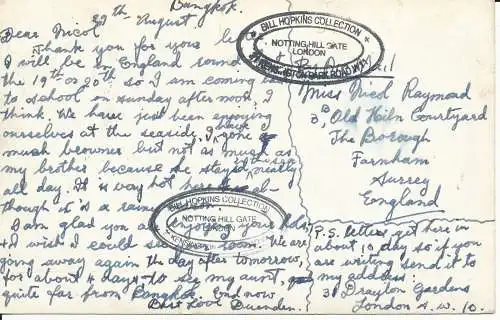 Bangkok.
27th August.
Dear Nicol
Thank you for your
I will be in England round
the 19th or 20th so I am coming
to school on Sunday afternoon, I
think. We have just been enjoying
ourselves at the seaside, I have gone
much browner but not as much as
my brother because he stayed in the sun really
all day. It is very hot here al-
though it's a rainy
I am glad you are enjoying your hols,
& I wish I could room. We are
going away again the day after tomorrow,
for about 4 days to see my aunt,
quite far from Bangkok, End now
Best Love
BILL HOPKINS COLLECTION
NOTTING HILL GATE
LONDON
KENSINGTON PARK ROAD W11
By Air Mail
Miss Nicol Raymond
3B Old Kiln Courtyard
The Borough
Farnham
Surrey
England
BILL HOPKINS COLLECTION
NOTTING HILL GATE
LONDON
P.S. letters get here in
about 10 day so if you
are writing send it to
my address:
3 Drayton Gardens
London S.W. 10.